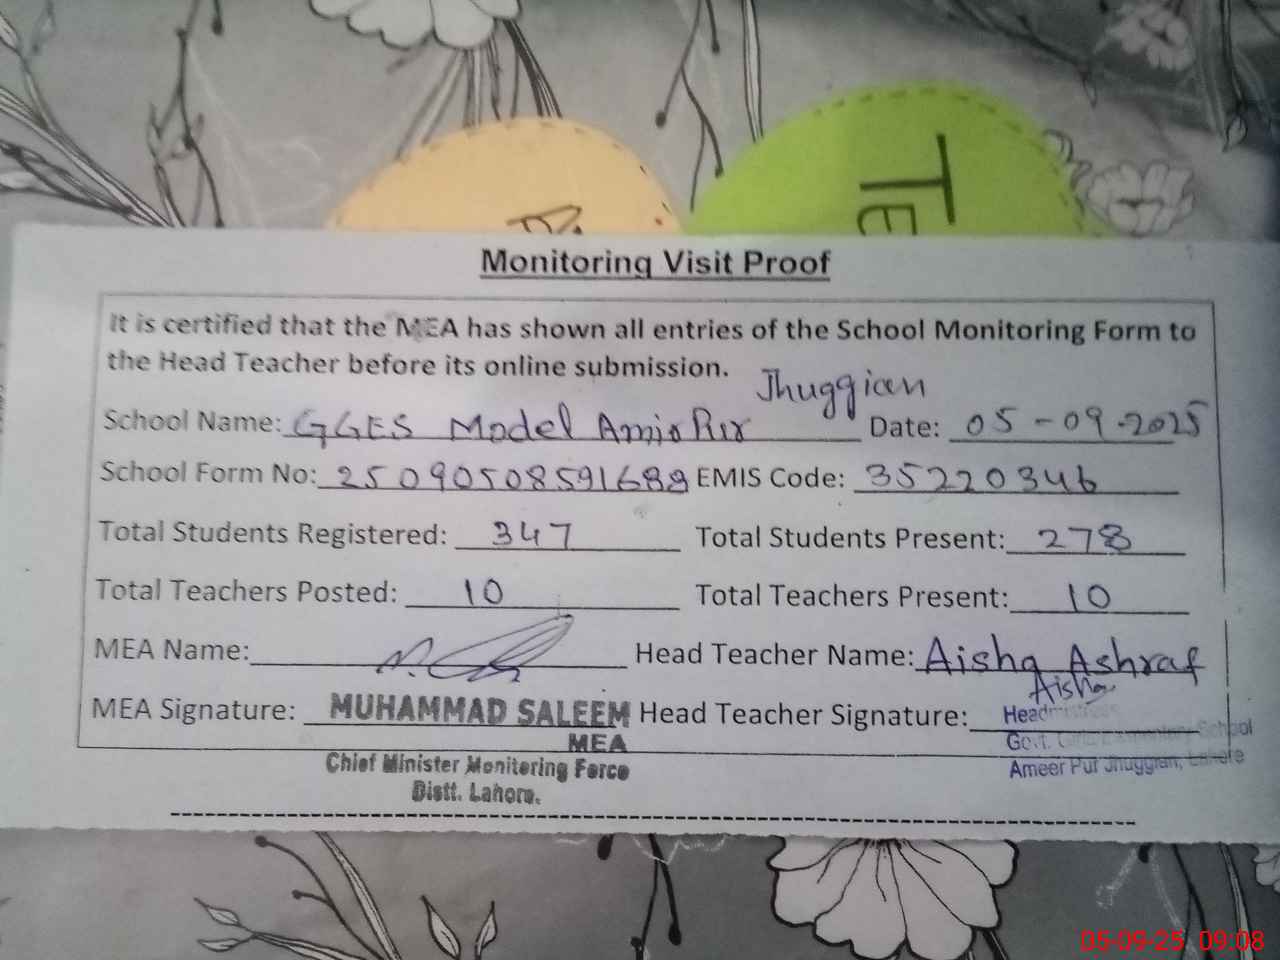 TE
Monitoring Visit Proof
It is certified that the MEA has shown all entries of the School Monitoring Form to
the Head Teacher before its online submission.
Jhuggian
School Name: GGES Model Amir Pur Date: 05-09-2025
School Form No: 25090508591688 EMIS Code: 35220346
Total Students Registered: 347 Total Students Present: 278
Total Teachers Posted: 10 Total Teachers Present: 10
MEA Name: Head Teacher Name: Aisha Ashraf
Aisha
MEA Signature: MUHAMMAD SALEEM Head Teacher Signature: Headmistress
MEA Govt. Girls Elementary School
Chief Minister Monitoring Force Ameer Pur Jhuggian, Lahore
Distt. Lahore.
05-09-25 09:08